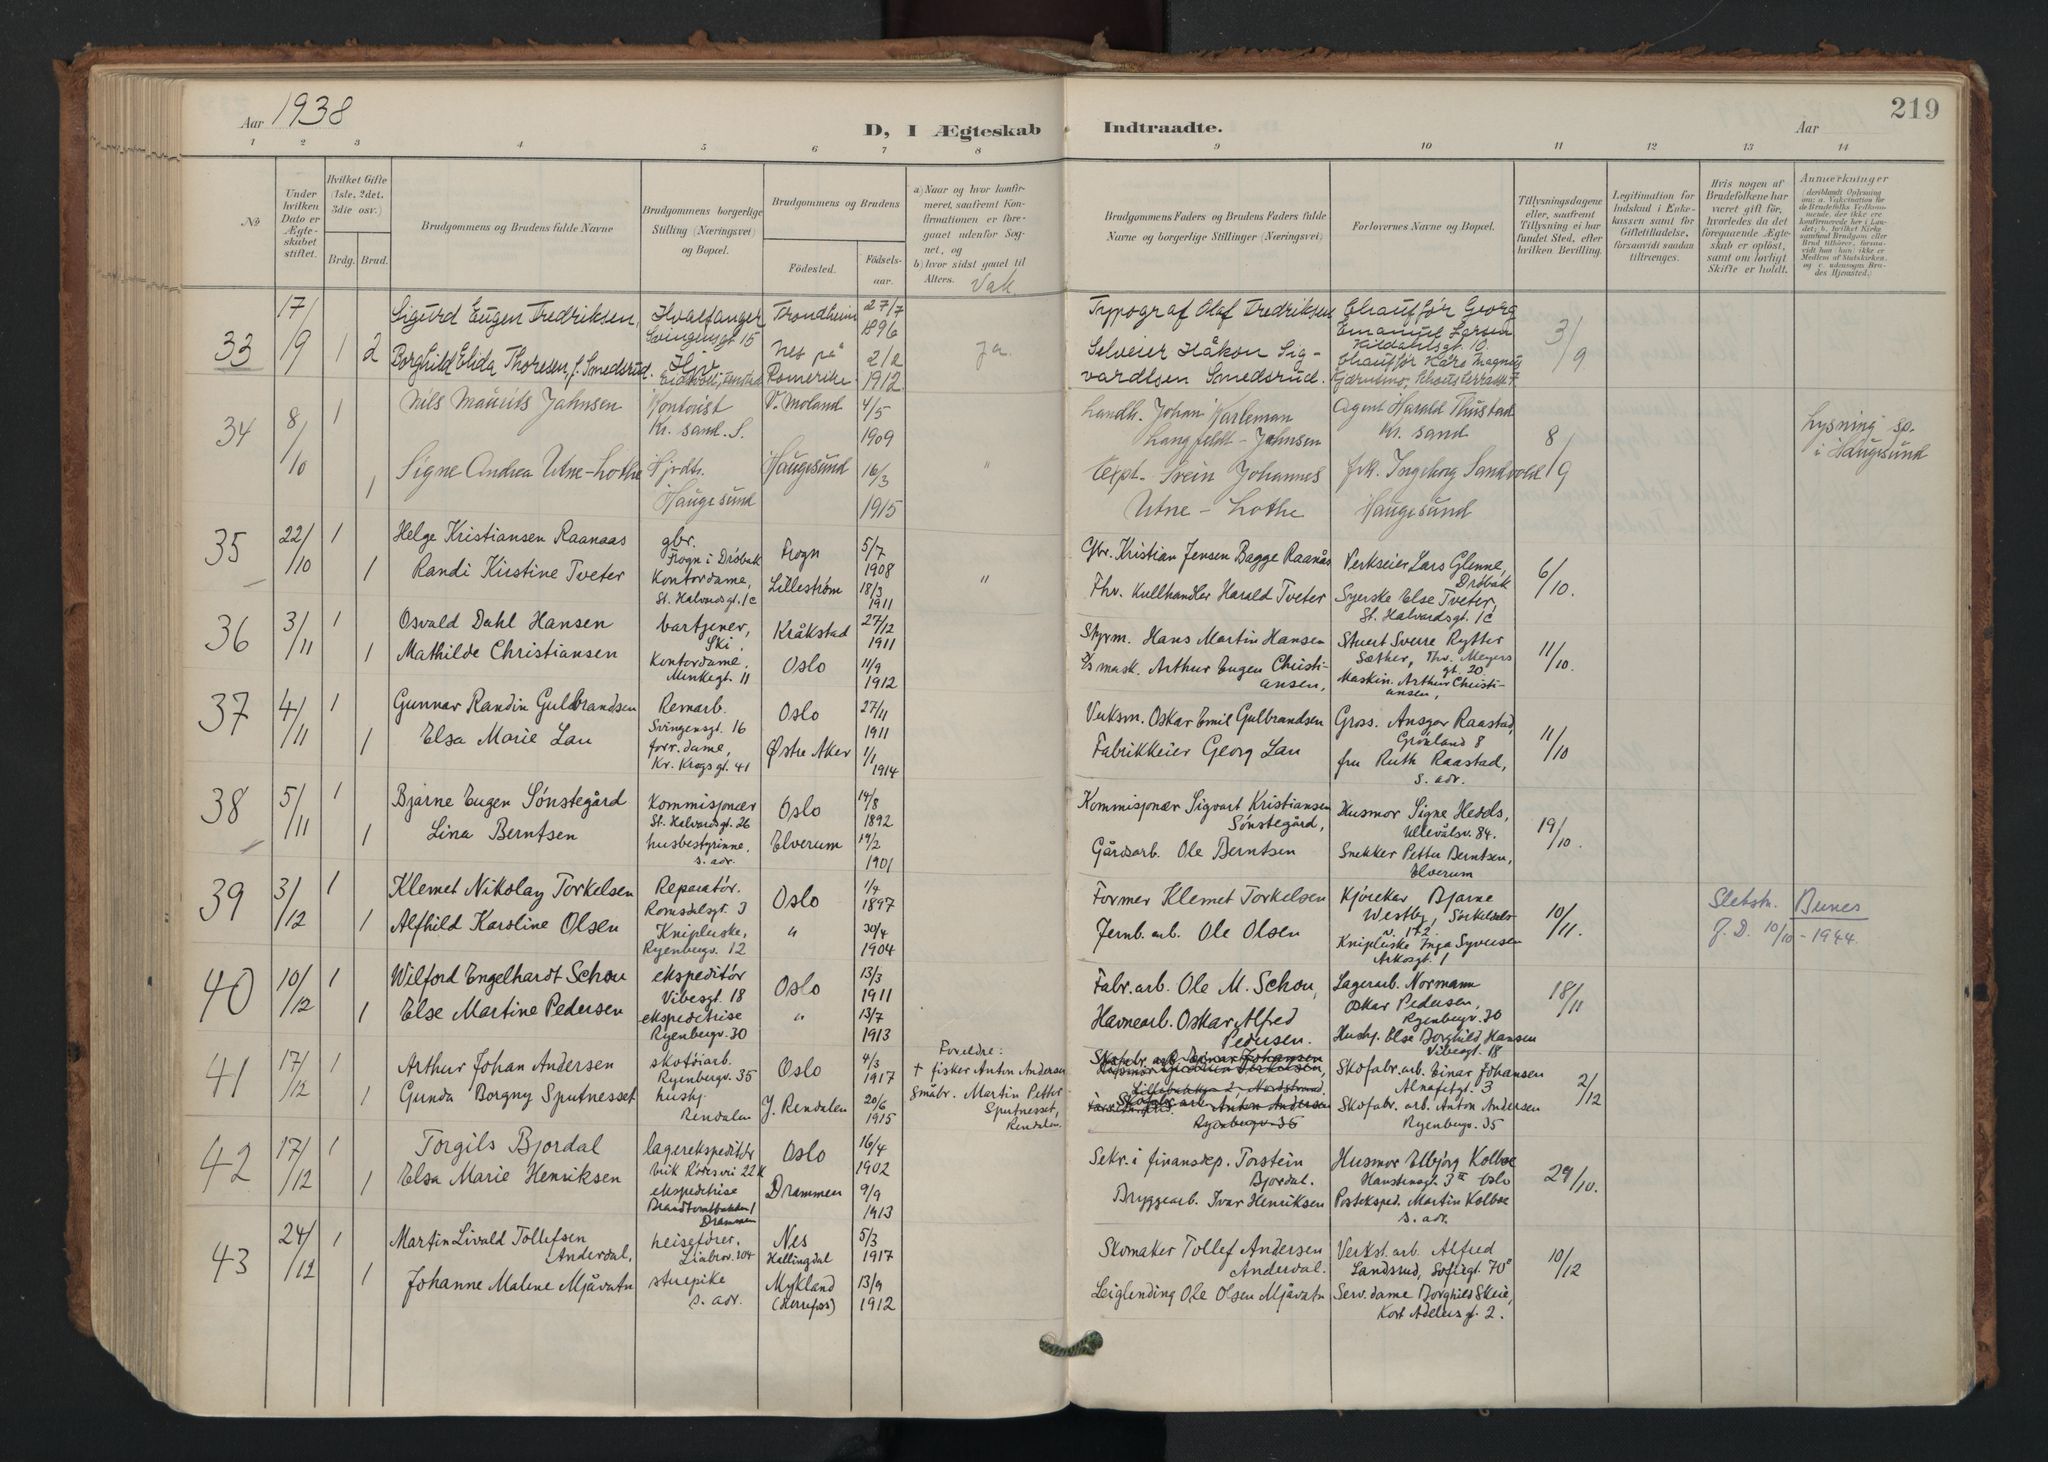 Aar 1938
D, I Ægteskab Indtraadte.
Aar
219
1 2 3 4 5 6 7 8 9 10 11 12 13 14
No
Under hvilken Dato er Ægteskabet stiftet.
Hvilket Gifte (1ste, 2det, 3die osv.)
Brdg. Brud.
Brudgommens og Brudens fulde Navne
Brudgommens borgerlige Stilling (Næringsvei) og Bopæl.
Brudgommens og Brudens
Födested.
Födselsaar.
a) Naar og hvor konfirmeret, saafremt Konfirmationen er foregaaet udenfor Sognet, og
b) hvor sidst gaaet til Alters.
Vak.
Brudgommens Faders og Brudens Faders fulde Navne og borgerlige Stillinger (Næringsvei)
Forlovernes Navne og Bopæl.
Tillysningsdagene eller, saafremt Tillysning ei har fundet Sted, efter hvilken Bevilling.
Legitimation for Indskud i Enkekassen samt for Giftetilladelse, forsaavidt saadan tiltrænges.
Hvis nogen af Brudefolkene har været gift för, hvorledes da det foregaaende Ægteskab er oplöst, samt om lovligt Skifte er holdt.
Anmærkninger
33 17/9 1 2
Sigurd Eugen Fredriksen, Hvalfanger Svingensgt 15 Trondheim 27/7 1896
Borghild Elida Thoresen, f. Smedsrud. Hjv. Nes på Romerike 2/2 1912
ja
Typograf Olaf Fredriksen
Selveier Håkon Sigvardtsen Smedsrud.
Chauffør Georg Emanuel Larsen Kildahlsgt. 10.
Chauffør Kåre Magnus
3/9
34 8/10 1
Nils Maurits Jahnsen Kontorist Kr. sand. S. V. Moland 4/5 1909
1 Signe Andrea Utne-Lothe Hjrdtr. Haugesund Haugesund 16/3 1915
"
Landh. Johan Karleman Langfeldt-Jahnsen
Expt. Svein Johannes Utne-Lothe
Agent Harald Thustad Kr. sand
frk. Ingeborg Sandvold Haugesund
8/9
Lysning sp. i Haugesund
35 22/10 1
Helge Kristiansen Raanaas gbr. Frogn i Drøbak Frogn 5/7 1908
1 Randi Kirstine Tveter Kontordame, St. Halvardsgt. 1c Lillestrøm 18/3 1911
"
Gbr. Kristian Jensen Bagge Raanås
Fhv. Kullhandler Harald Tveter
Verkseier Lars Glenne, Drøbak
Syerske Else Tveter, St. Halvardsgt. 1c
6/10.
36 3/11 1
Osvald Dahl Hansen vartjener, Ski, Kråkstad 27/12 1911
1 Mathilde Christiansen Kontordame, Minkegt. 11 Oslo 11/9 1912
Styrm. Hans Martin Hansen
mask. Arthur Eugen Christiansen,
Stuert Sverre Rytter Sæther, Thv. Meyers gt. 20
Maskin. Arthur Christiansen,
11/10.
37 4/11 1
Gunnar Randin Gulbrandsen Remarb. Svingensgt. 16 Oslo 27/11 1911
1 Elsa Marie Lau forr. dame, Kr. Krogs gt. 41 Østre Aker 1/1 1914
Verksm. Oskar Emil Gulbrandsen
Fabrikkeier Georg Lau
Gross. Ansgar Raastad, Grønland 8
fru Ruth Raastad, s. adr.
11/10
38 5/11 1
Bjarne Eugen Sønstegård Kommisjonær St. Halvardsgt. 26 Oslo 14/8 1892
1 Lina Berntsen husbestyrinne, s. adr. Elverum 19/2 1901
Kommisjonær Sigvart Kristiansen Sønstegård,
Gårdsarb. Ole Berntsen
Husmor Signe Hedds, Ullevålsv. 84.
Snekker Petter Berntsen, Elverum
19/10.
39 3/12 1
Klemet Nikolay Torkelsen Reparatør. Romsdalsgt. 3 Oslo 1/4 1897
1 Alfhild Karoline Olsen Knipluske, Ryenbergv. 12 " 30/4 1904
Former Klemet Torkelsen
Jernb. arb. Ole Olsen
Kjørekar Bjarne Westby, Sørkedalsv. 172.
Knipluske Inga Syversen Arkosgt. 1
10/11.
Slektsn. Bunes
J. D. 10/10-1944.
40 10/12 1
Wilford Engelhardt Schou ekspeditør Vibesgt. 18 Oslo 13/3 1911
1 Else Martine Pedersen ekspeditrise Ryenbergv. 30 " 13/7 1913
Fabr. arb. Ole M. Schou,
Havnearb. Oskar Alfred Pedersen.
Lagerarb. Normann Oskar Pedersen, Ryenbergv. 30
Hushj. Else Borghild Hansen Vibesgt. 18
18/11
41 17/12 1
Arthur Johan Andersen skotøiarb. Ryenbergv. 35 Oslo 4/3 1917
1 Gunda Borgny Sputnesset hushj. Rendalen Y. Rendalen 20/6 1915
Foreldre:
+ fisker Anton Andersen
Småbr. Martin Petter Sputnesset, Rendalen.
Skofabr. arb. Einar Johansen
Skofabr. arb. Anton Andersen
Ryenbergv. 35
Skofabr. arb. Einar Johansen Alnafetgt. 3
Skofabr. arb. Anton Andersen Ryenbergv. 35
2/12
42 17/12 1
Torgils Bjordal lagerekspeditør Erik Rødesvei 22k Oslo 16/4 1902
1 Elsa Marie Henriksen ekspeditrise Drammen Drammen 9/9 1913
Sekr. i finansdep. Torstein Bjordal.
Bryggearb. Ivar Henriksen
Husmor Elbjørg Kolboe Hanstensgt. 3 II Oslo
Posteksped. Martin Kolboe s. adr.
29/10.
43 24/12 1
Martin Livald Tollefsen Anderdal, heisefører, Liabrov. 104 Nes Hallingdal 5/3 1917
1 Johanne Malene Mjåvatn stuepike s. adr. Mykland (Herrefoss) 13/9 1912
Skomaker Tollef Andersen Anderdal.
Leiglending Ole Olsen Mjåvatn
Verkst. arb. Alfred Landsrud, Sofiegt. 70
Serv. dame Borghild Skeie, Kort Adelersgt. 2.
10/12